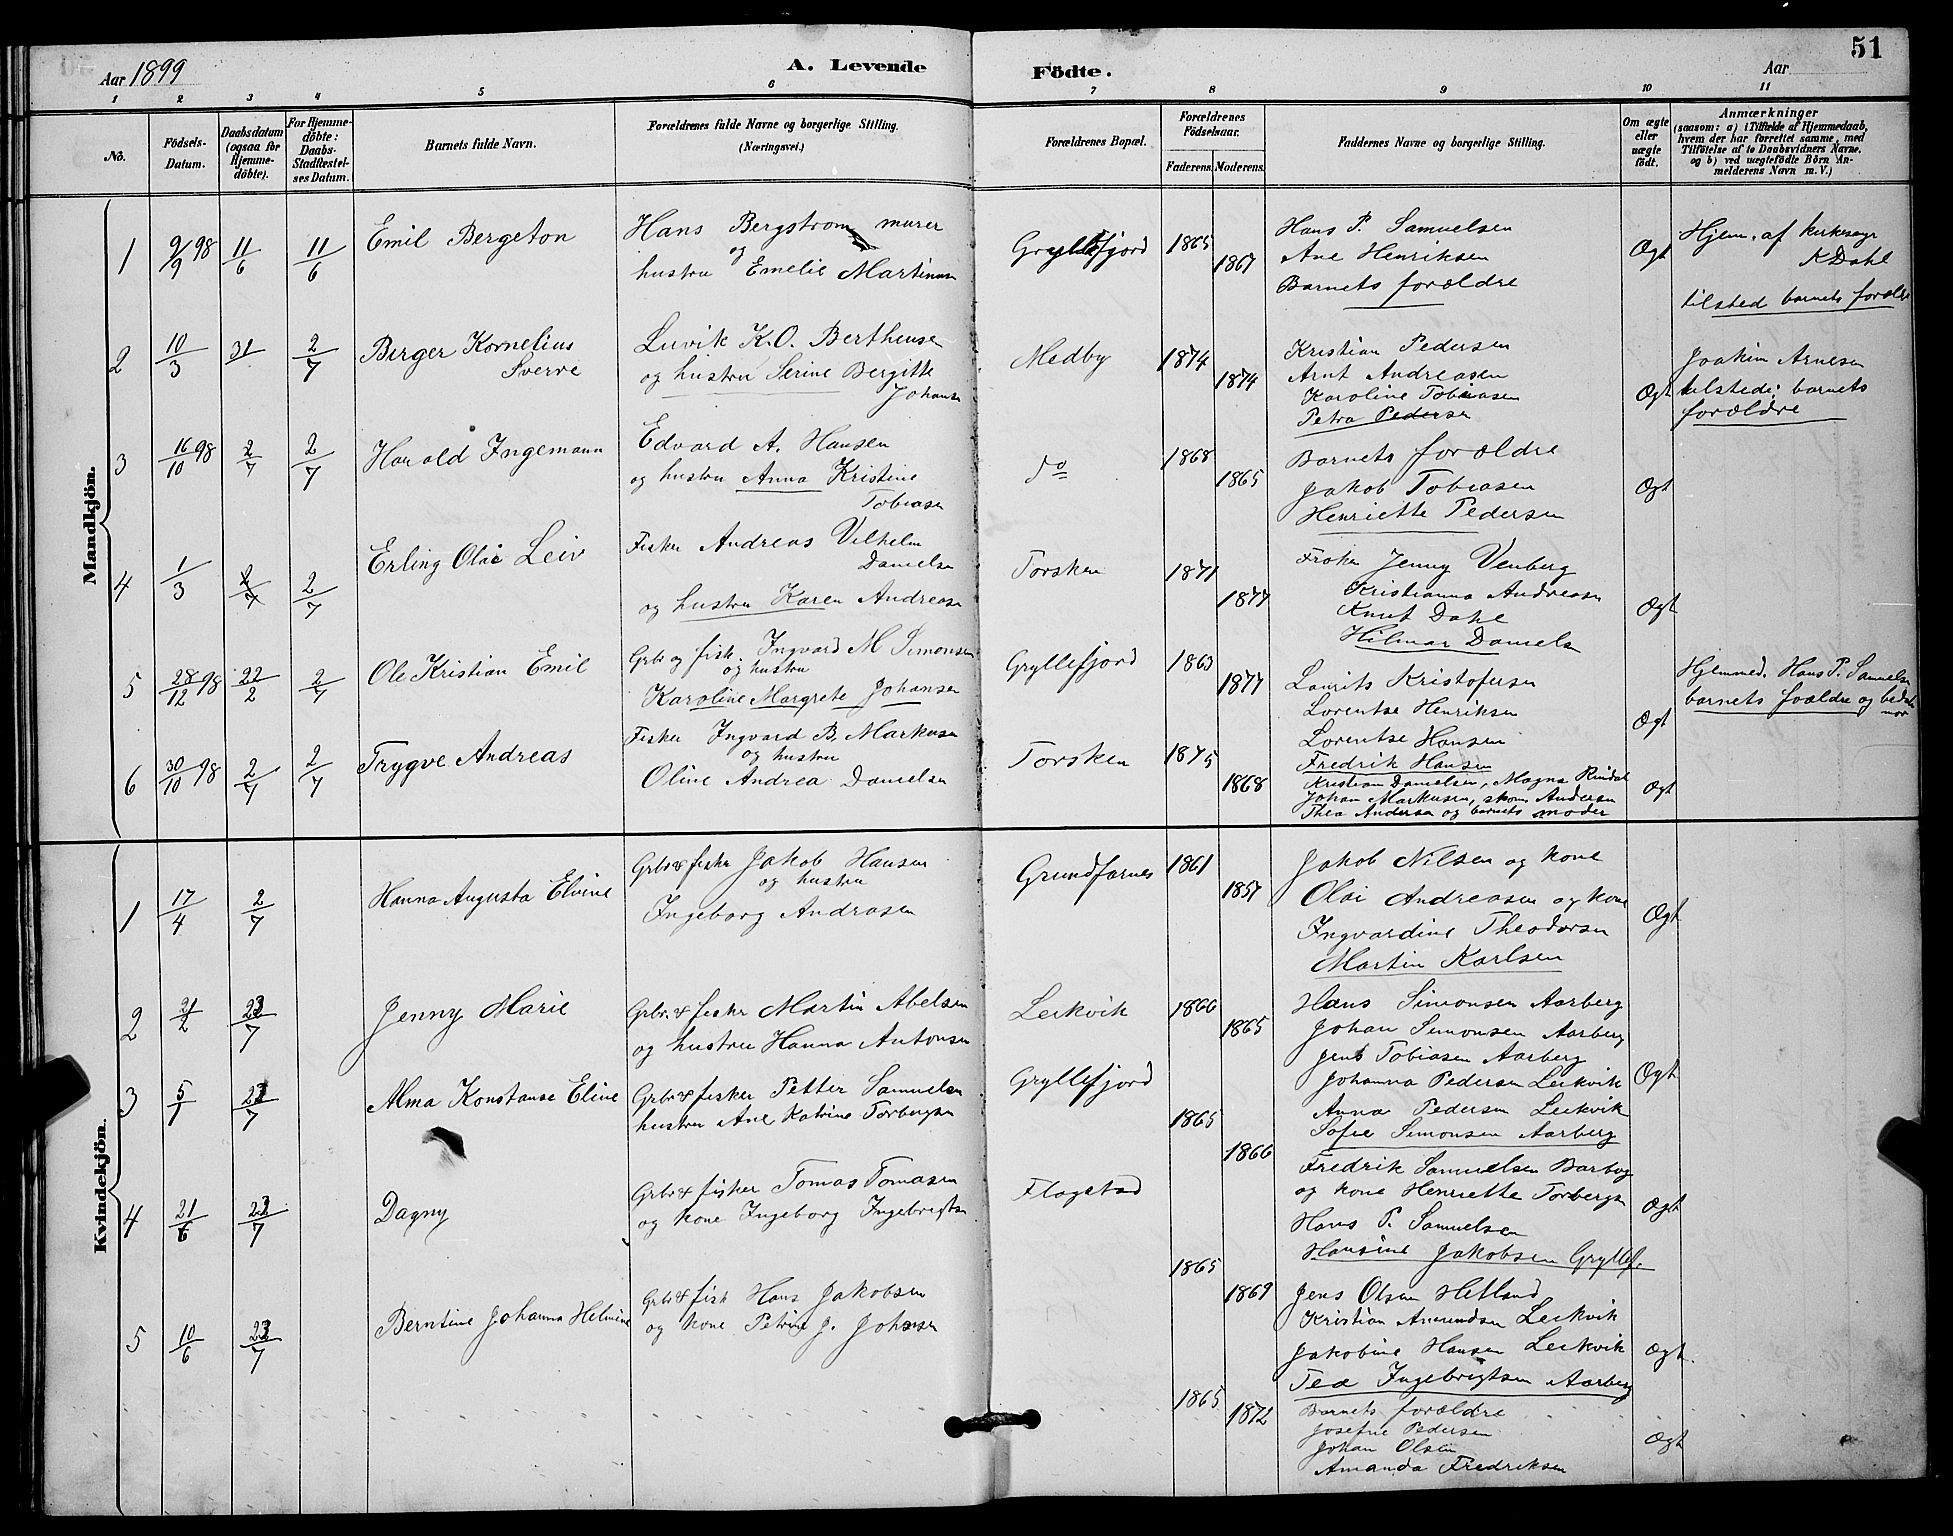 Aar 1899
A. Levende
Födte.
Aar
51
1 2 3 4 5 6 7 8 9 10 11
No.
Födsels-Datum.
Daabsdatum (ogsaa for Hjemme-döbte).
For Hjemme-döbte: Daabs-Stadfæstel-ses Datum.
Barnets fulde Navn.
Forældrenes fulde Navne og borgerlige Stilling.
(Næringsvei.)
Forældrenes Bopæl.
Forældrenes Födselsaar.
Faderens. Moderens.
Faddernes Navne og borgerlige Stilling.
Om ægte eller uægte födt.
Anmærkninger
(saasom: a) i Tilfælde af Hjemmedaab, hvem der har forrettet samme, med Tilföielse af to Daabsvidners Navne, og b) ved uægtefödte Börn An-melderens Navn m. V.)
Mandkjön.
1 9/9 98 11/6 11/6 Emil Bergeton
Hans Bergstrom murer
og
hustru Emelie Martinusen
Gryllefjord 1865 1867
Hans P. Samuelsen
Ane Henriksen
Barnets forældre
Ægt
Hjem. af kirkesagr
K Dahl
tilsted barnets forældre
2 10/3 31 2/7 Berger Kornelius
Sverre
Luvik K.O. Berthensen
og hustru Serine Bergitte
Johansen
Medby 1874 1874
Kristian Pedersen
Arnt Andreasen
Karoline Tobiasen
Petra Pedersen
Ægt
Joakim Arnesen
tilstede: barnets
forældre
3 16/10 98 2/7 2/7 Harald Ingemann
Edvard A. Hansen
og hustru Anna Kristine
Tobiasen
do 1868 1865
Barnets forældre
Jakob Tobiasen
Henriette Pedersen
Ægt
4 1/3 2/7 2/7 Erling Olai Leiv
Fisker Andreas Vilhelm
Danielsen
og hustru Karen Andreasen
Torsken 1871 1877
Frøken Jenny Venberg
Kristianna Andreasen
Knut Dahl
Hilmar Daniels
Ægt
5 28/12 98 22/2 2/7 Ole Kristian Emil
Grbr og fisk. Ingvard M Simonsen
og hustru
Karoline Margrete Johansen
Gryllefjord 1863 1877
Laurits Kristofersen
Lorentse Henriksen
Lorentse Hansen
Fredrik Hansen
Ægt
Hjemmed. Hans P. Samuelsen
barnets forældre og bedstemor
6 30/10 98 2/7 2/7 Trygve Andreas
Fisker Ingvard B. Markusen
og hustru
Oline Andrea Danielsen
Torsken 1875 1868
Kristian Danielsen, Magna Rindal
Johan Markusen, skom. Andersen
Thea Andersen og barnets moder
Ægt
Kvindekjön.
1 17/4 2/7 Hanna Augusta Elvine
Grbr & fisker Jakob Hansen
og hustru
Ingeborg Andreasen
Grundfarnes 1861 1857
Jakob Nilsen og kone
Olai Andreasen og kone
Ingvardine Theodorsen
Martin Karlsen
Ægt
2 21/2 23/7 Jenny Marie
Grbr. & fisker Martin Abelsen
og hustru Hanna Antonsen
Leikvik 1866 1865
Hans Simonsen Aarberg
Johan Simonsen Aarberg
Jens Tobiasen Aarberg
Johanna Pedersen Leikvik
Anna Pedersen Leikvik
Sofie Simonsen Aarberg
Ægt
3 5/1 23/7 Alma Konstanse Eline
Grbr & fisker Petter Samuelsen
hustru Ane Katrine Torbergsen
Gryllefjord 1865 1866
Fredrik Samuelsen
og kone Henriette Torbergsen
Hans P. Samuelsen
Hansine Jakobsen Gryllef.
Ægt
4 21/6 23/7 Dagny
Grbr & fisker Tomas Tomasen
og kone Ingeborg Ingebrigtsen
Flagstad 1865 1869
Jens Olsen Hetland
Kristian Amundsen Leikvik
Jakobine Hansen Leikvik
Tea Ingebrigtsen Aarberg
Ægt.
5 10/6 23/7 Berntine Johanna Helmine
Grbr & fisk Hans Jakobsen
og kone Petrine J. Johnsen
1865 1872
Barnets forældre
Josefine Pedersen
Johan Olsen
Amanda Fredriksen
Ægt